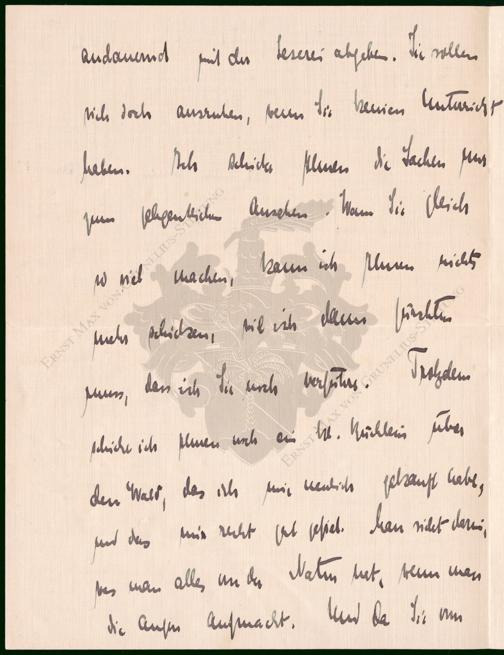 andauernd mit der Leserei abgeben. Sie sollen
sich doch ausruhen, wenn Sie keinen Unterricht
haben. Ich schicke Ihnen die Sachen nur
zum gelegentlichen Ansehen. Wenn Sie gleich
so viel machen, kann ich Ihnen nichts
mehr schicken, weil ich dann fürchten
muss, dass ich Sie noch verführe. Trotzdem
schicke ich Ihnen noch ein kl. Büchlein über
den Wald, das ich mir neulich gekauft habe,
und das mir recht gut gefiel. Man sieht darin,
was man alles von der Natur hat, wenn man
die Augen aufmacht. Und da Sie vom
ERNST MAX VON GRUNELIUS-STIFTUNG
ERNST MAX VON GRUNELIUS-STIFTUNG